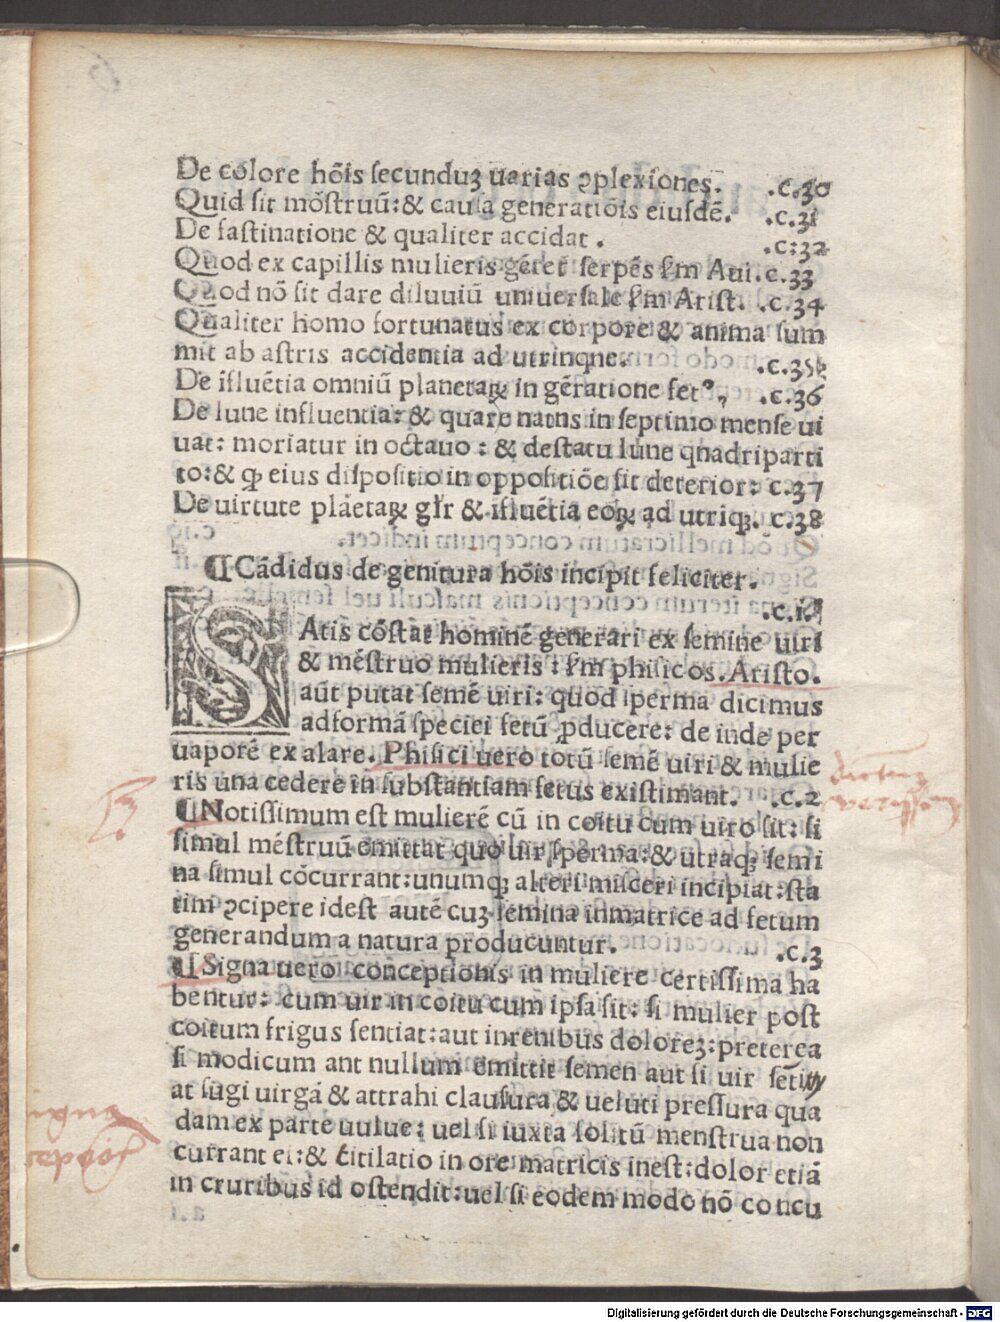 De colore hōis ſecunduꝫ uarias ꝯplexiones. .c.30
Quid ſit mōſtruū:& cauſa generatiōis eiuſdē. .c.31
De faſtinatione & qualiter accidat . .c:32
Quod ex capillis mulieris gēret ſerpēs ſm Aui.c.33
Quod nō ſit dare diluuiū uniuerſale ſm Ariſt. .c.34
Qualiter homo fortunatus ex corpore & anima ſum
mit ab aſtris accidentia ad utrinqne. .c.35
De īfluētia omniū planetaꝝ in gēratione fetꝰ, .c.36
De lune influentia: & quare natns in ſeptimo menſe ui
uat: moriatur in octauo : & deſtatu lune qnadriparti
to:& ꝙ eius diſpoſitio in oppoſitiōe ſit deterior: c.37
De uirtute plāetaꝝ gl̄r & īfluētia eoꝝ ad utriqꝫ. c.38
¶Cādidus de genitura hōis incipit feliciter.
.c.1.
SAtis cōſtat hominē generari ex ſemine uiri
& mēſtruo mulieris : ſm phiſicos. Ariſto.
aūt putat ſemē uiri: quod ſperma dicimus
adformā ſpeciei fetū ꝓducere: de inde per
uaporē exalare. Phiſici uero totū ſemē uiri & mulie
ris una cedere in ſubſtantiam fetus exiſtimant. .c.2
¶Notiſſimum eſt mulierē cū in coitu cum uiro ſit: ſi
ſimul mēſtruū emittat quo uir ſperma:& utraqꝫ ſemi
na ſimul cōcurrant:unumqꝫ alteri miſceri incipiat:ſta
tim ꝯcipere ideſt autē cuꝫ ſemina inmatrice ad fetum
generandum a natura producuntur. .c.3
¶Signa uero conceptionis in muliere certiſſima ha
bentur: cum uir in coitu cum ipſa ſit: ſi mulier poſt
coitum frigus ſentiat:aut inrenibus doloreꝫ:preterea
ſi modicum ant nullum emittit ſemen aut ſi uir ſēti
at ſugi uirgā & attrahi clauſura & ueluti preſſura qua
dam ex parte uulue: uel ſi iuxta ſolitū menſtrua non
currant ei:& titilatio in ore matricis ineſt:dolor etiā
in cruribus id oſtendit:uel ſi eodem modo nō concu
Digitalisierung gefördert durch die Deutsche Forschungsgemeinschaft - DFG